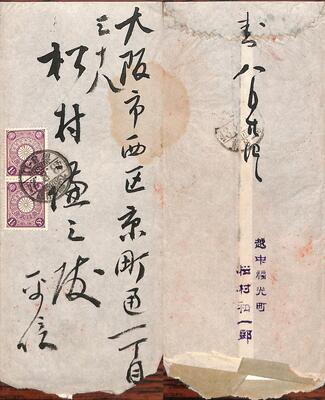 大阪市西区京町通一丁目
三十八
松村謙三殿
平信
封 八月廿九日
越中福光町
松村和一郎